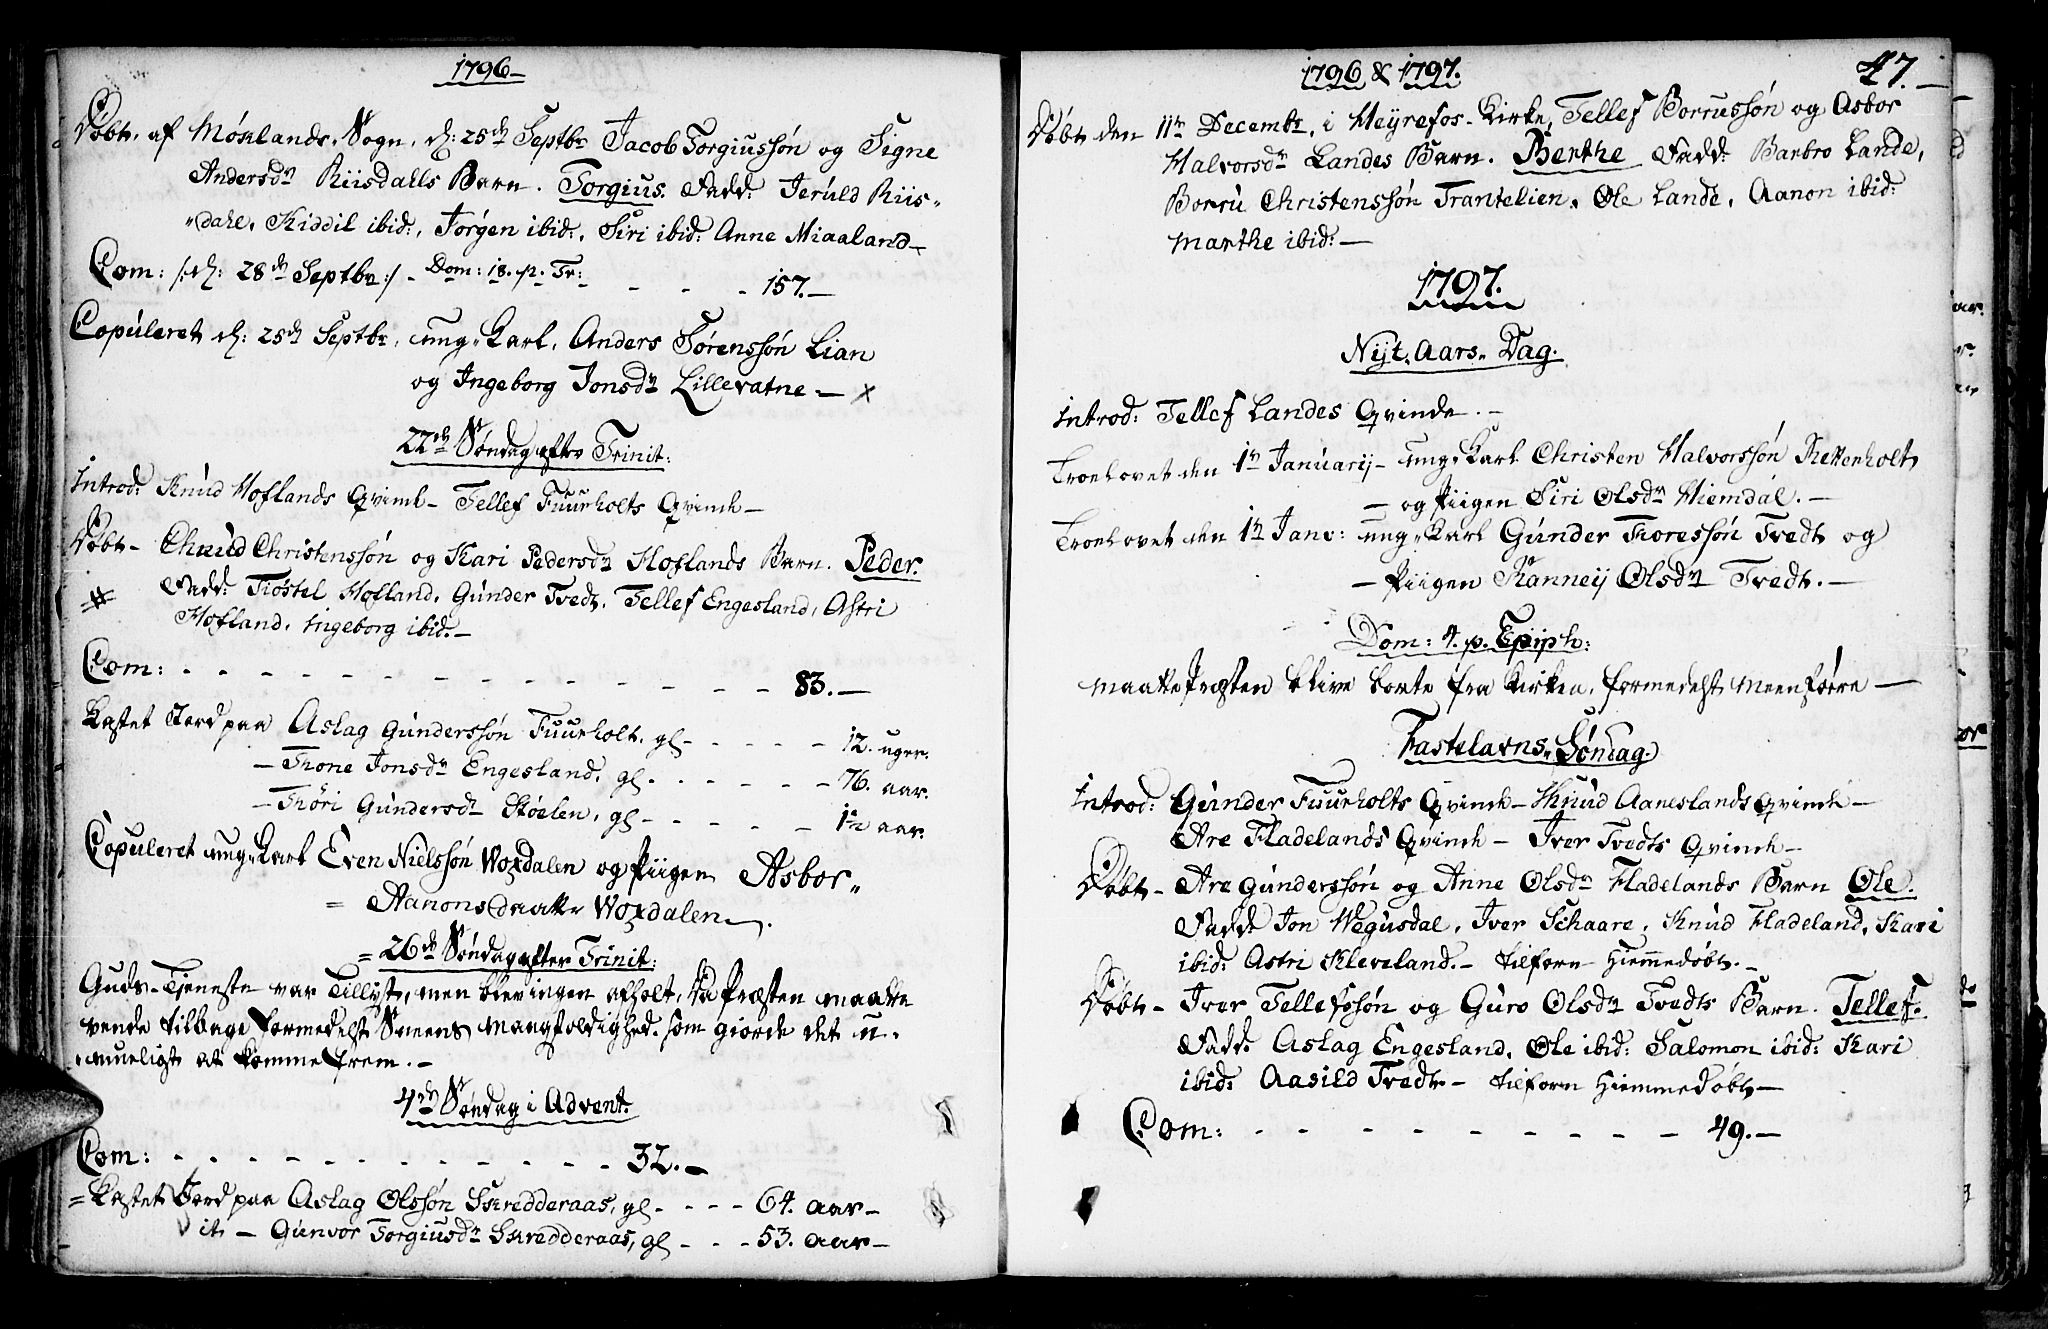 1796
Döbt, af Mósslands Sogn, d: 25de Septbr Jacob Torgiussón og Signe
Andersdr Riisdalls Barn. Torgius. Fadd: Jeruld Riis-
dahl, Kiddil ibid:, Jórgen ibid:, Siri ibid: Anne Miaaland
Com: /:d: 28de Septbr:/ - Dom: 18. p. Tr: - - - 157.
Copuleret d: 25de Septbr, ung-Karl, Anders Sórenssón Lian
og Ingeborg Jonsdr Lillevatne - x
22de Söndag efter Trinit:
Introd: Knud Hoflands Qvinde - Tellef Fuurholts Qvinde -
Döbt - Chnud Christenssón og Kari Pedersdr Hoflands Barn. Peder.
# Fadd: Tióstel Hofland, Gunder Tvedt, Tellef Engesland, Astri
Hofland, Ingeborg ibid. -
Com: - - - - - - - - - - 83. -
Kastet Jord paa Aslag Gunderssón Fuurholt, gl - - - - 12. uger.
- Thone Jonsdr Engesland, gl - - - - - 76. aar.
- Thóri Gundersdr Stóelen, gl - - - - - 1½ aar.
Copuleret ung-Karl Even Nielssón Woxdalen og Piigen Asbor-
= Aanonsdaatter Woxdalen.
= 26de Söndag efter Trinit:
Guds-Tjeneste var Tillyst, men blev ingen afholt, da Præsten maatte
vende tilbage formedelst Sneens mangfoldighed, som giorde det u-
mueligt at komme frem. -
4de Söndag i Advent.
Com: - - - - - - - - - - 32. -
= Kastet Jord paa Aslag Olssón Skredderaas, gl - - - - 64. aar -
it - Gunvor Torgiusdr Skredderaas, gl - - - 53. aar -
1796 & 1797.
47. -
Döbt den 11te Decembr, i Heyrefos-Kirke, Tellef Borrussón og Asbor
Halvorsdr Landes Barn. Berthe Fadd: Barbro Lande,
Borru Christenssón Trantelien, Ole Lande, Aanon ibid:
Marthe ibid: -
1797.
Nyt-Aars-Dag.
Introd: Tellef Landes Qvinde. -
Troelovet den 1te Januarij - ung-Karl Christen Halvorssón Rettenholt
- og Piigen Siri Olsdr Hiemdal. -
Troelovet den 1te Janv: ung-Karl Gunder Thoressón Tvedt og
- Piigen Ranneij Olsdr Tvedt. -
Dom: 4. p. Epiph:
Maatte Præsten blive borte fra Kirken, formedelst Meenföere -
Fastelavns-Söndag.
Introd: Gunder Fuurholts Qvinde - Knud Aaneslands Qvinde -
Are Fladelands Qvinde - Iver Tvedts Qvinde -
Döbt - Are Gunderssón og Anne Olsdr Fladelands Barn Ole.
Fadd: Jon Wegusdal, Iver Schaare, Knud Fladeland, Kari
ibid: Astri Kleveland. - tilforn Hiemmedöbt. -
Döbt - Iver Tellefssón og Guro Olsdr Tvedts Barn. Tellef.
Fadd: Aslag Engesland, Ole ibid: Salomon ibid: Kari
ibid: Aasild Tvedt - tilforn Hiemmedöbt -
Com: - - - - - - - - 49. -